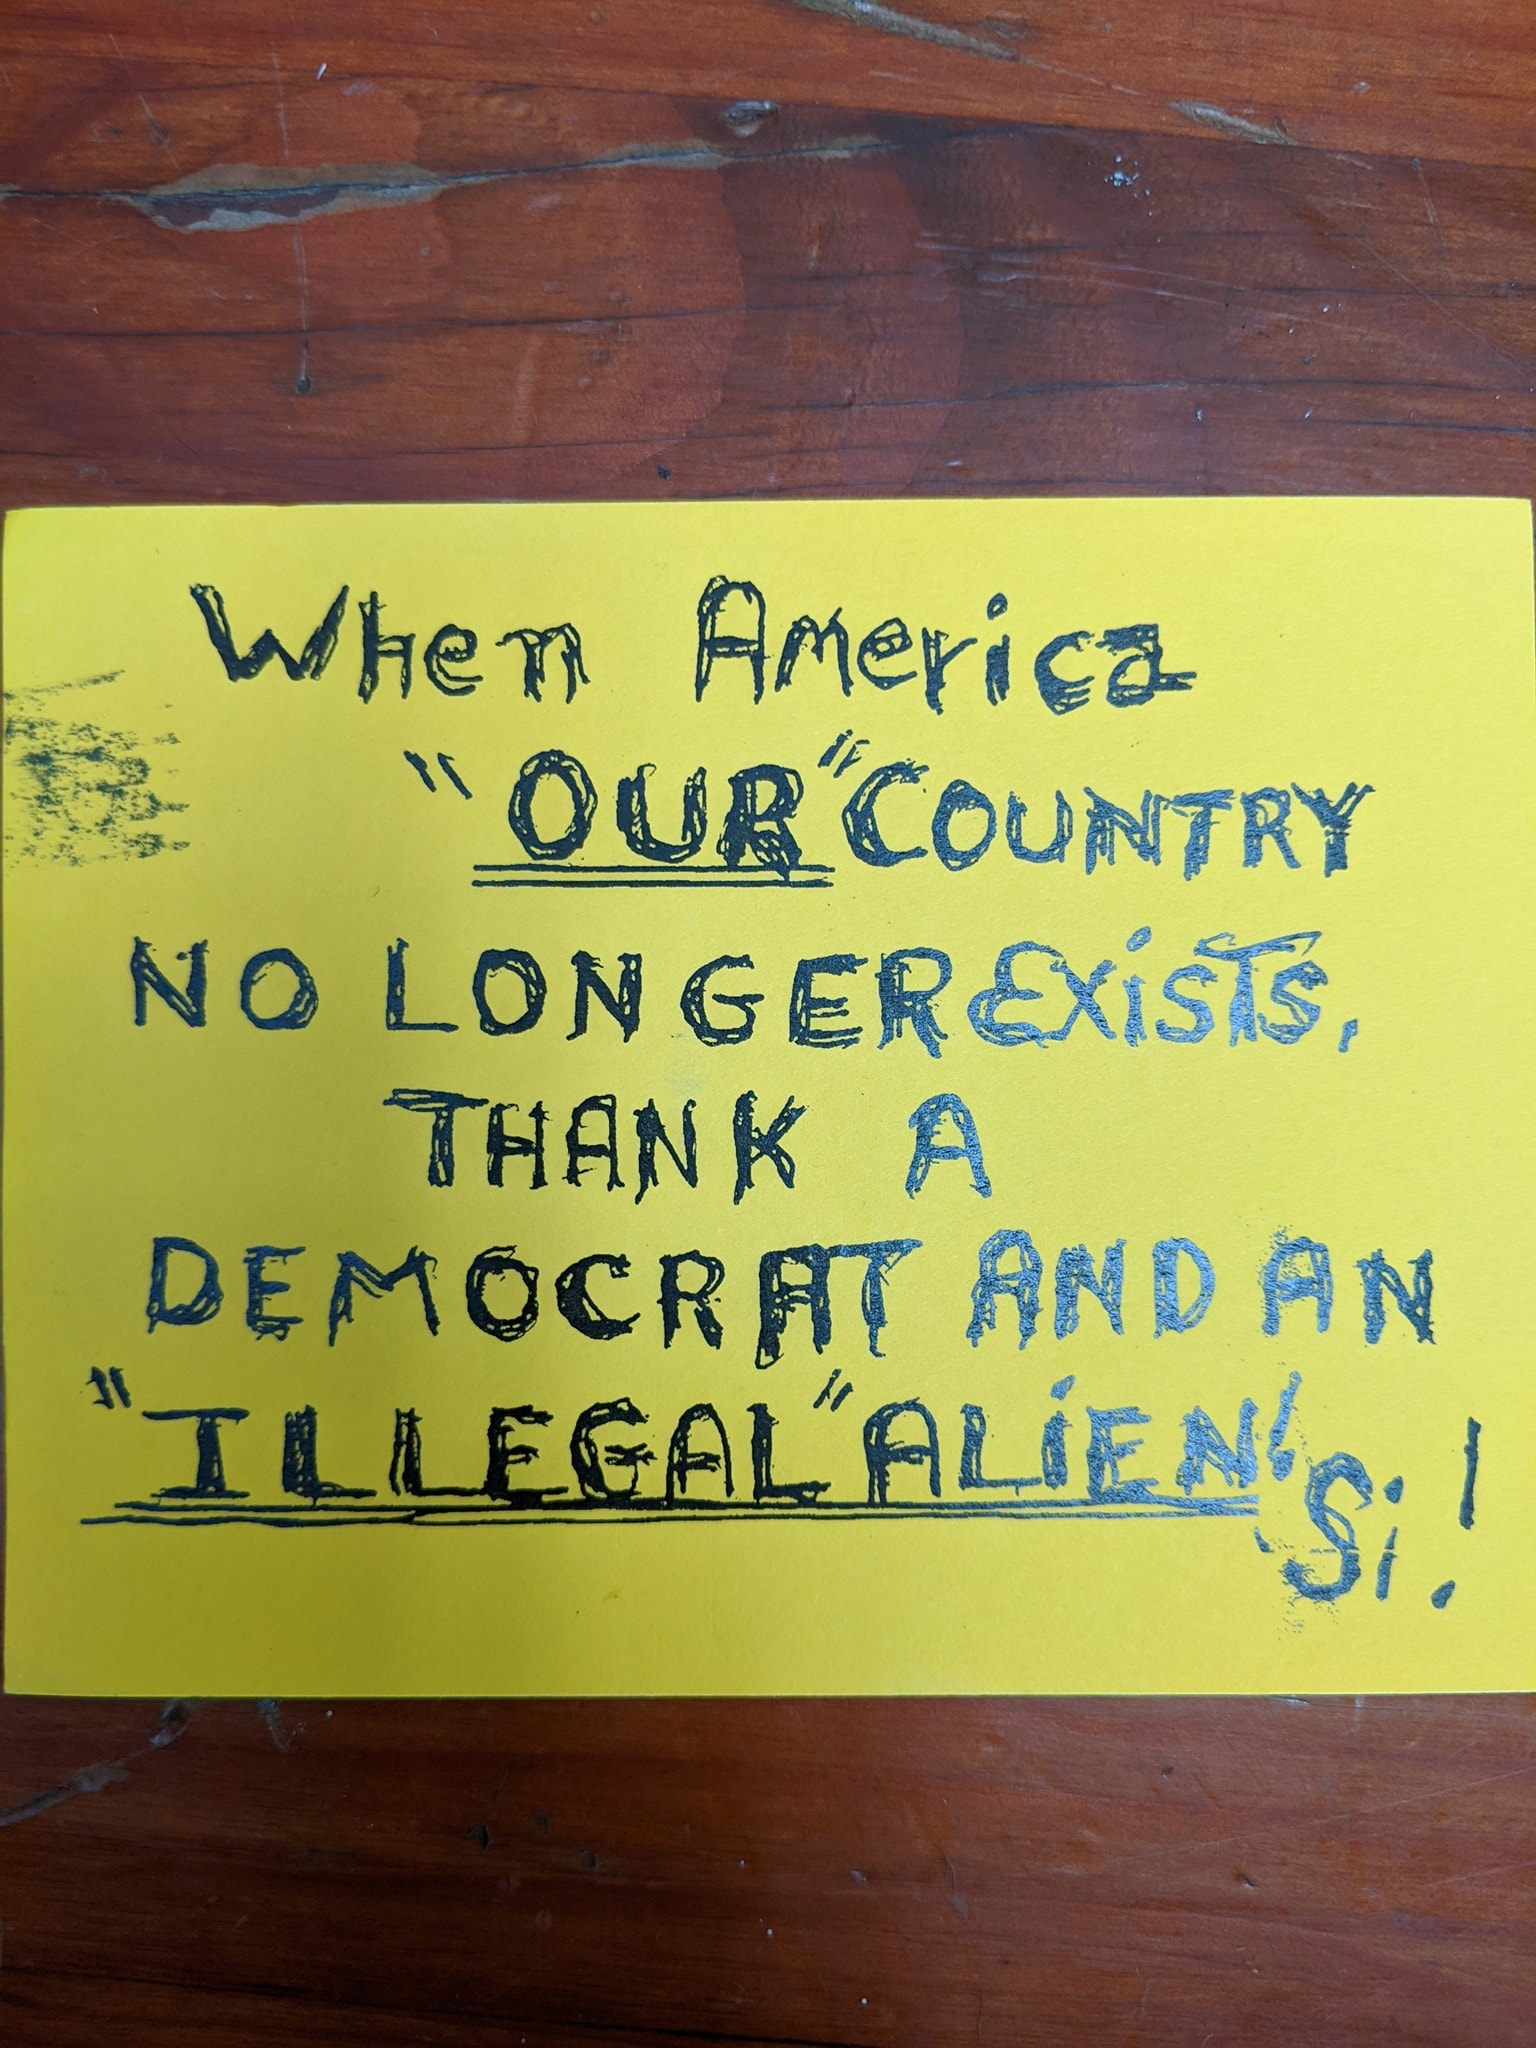 When America
"OUR" COUNTRY
NO LONGER EXISTS,
THANK A
DEMOCRAT AND AN
"ILLEGAL" ALIEN!
Si!